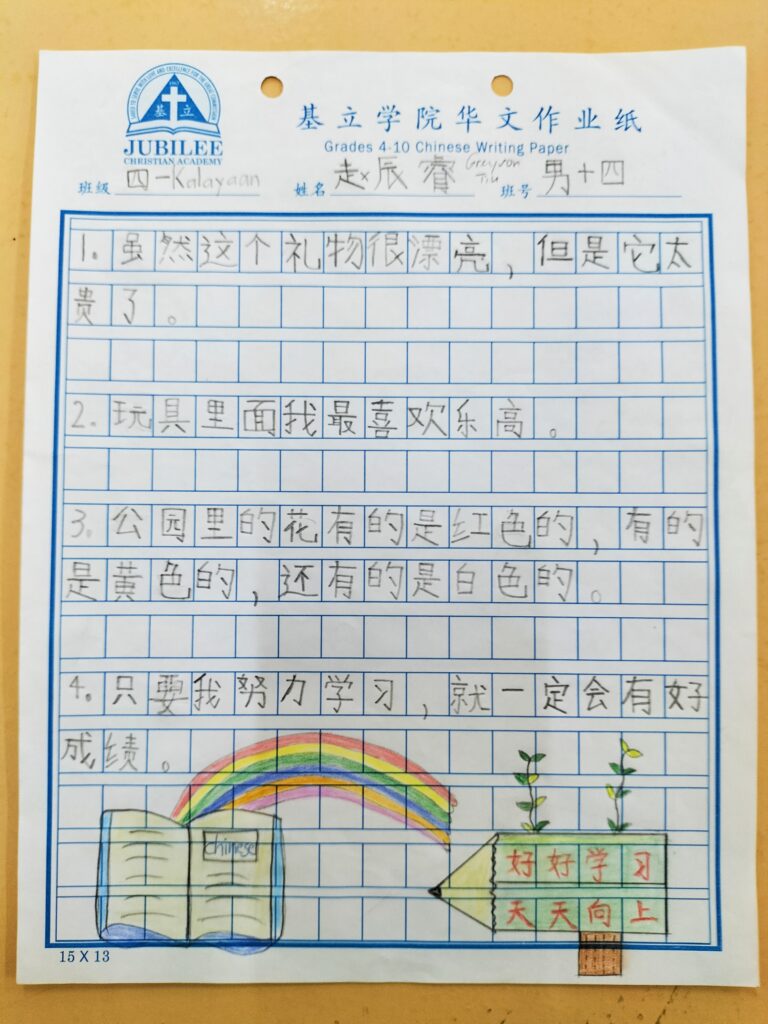 基立
JUBILEE
CHRISTIAN ACADEMY
基立学院华文作业纸
Grades 4-10 Chinese Writing Paper
班级 四一Kalayaan 姓名 赵辰睿 Greyson 班号 男十四
1. 虽然这个礼物很漂亮，但是它太
贵了。
2. 玩具里面我最喜欢乐高。
3. 公园里的花有的是红色的，有的
是黄色的，还有的是白色的。
4. 只要我努力学习，就一定会有好
成绩。
chinese
好好学习
天天向上
15 X 13